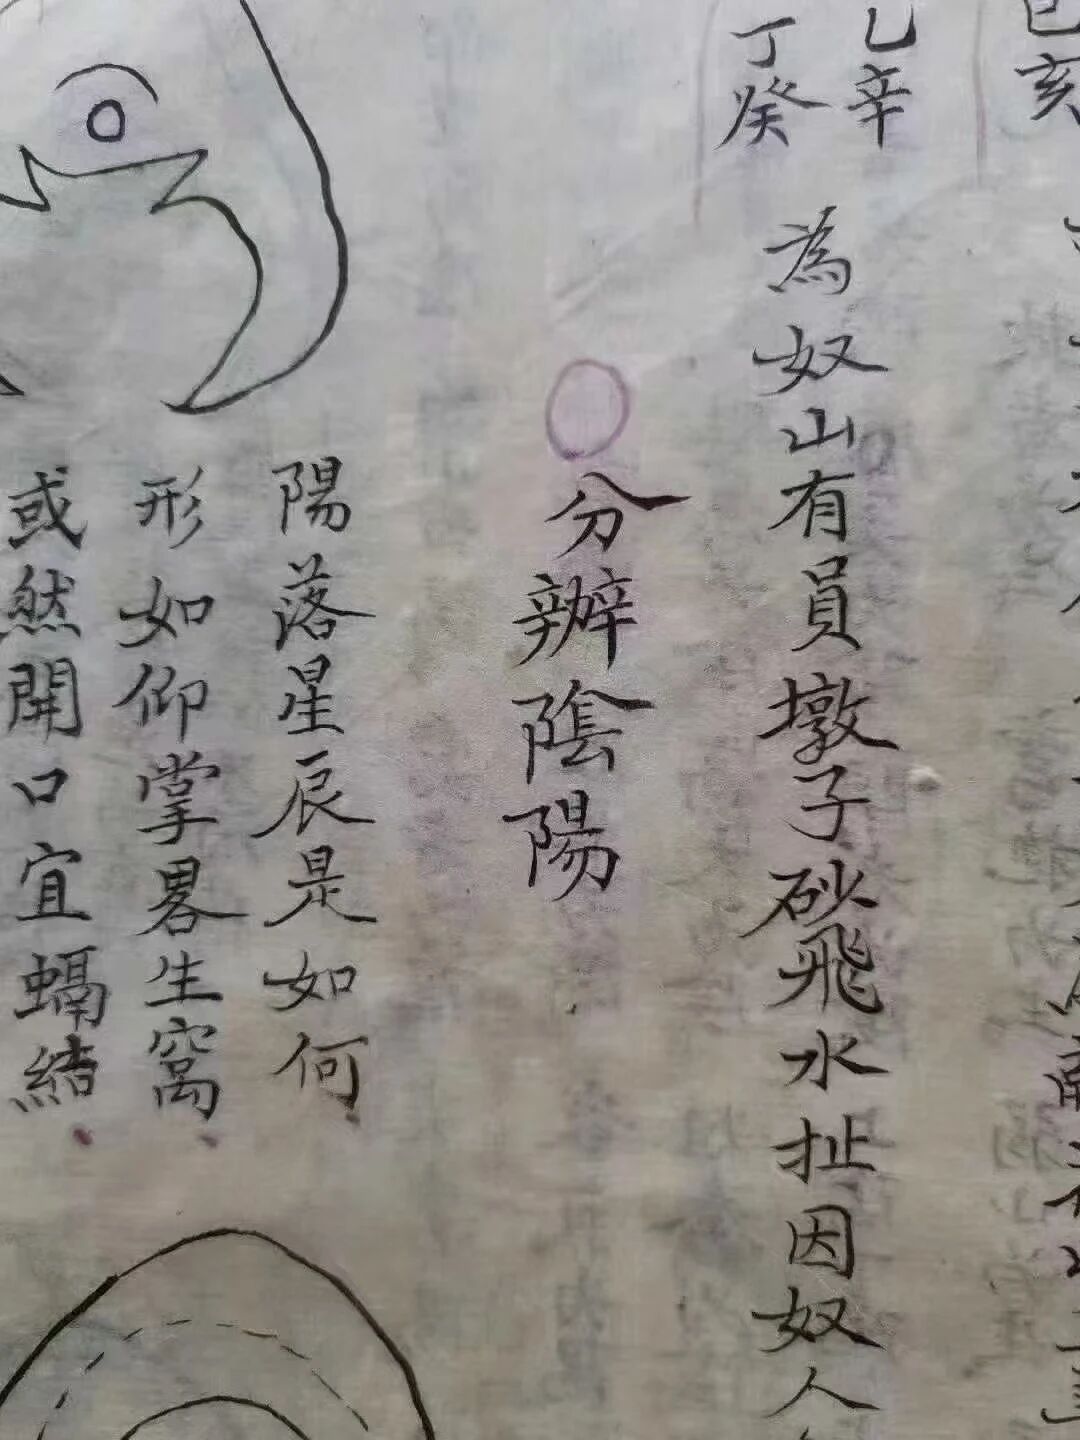 巳亥
乙辛
丁癸
為奴山有員墩子砂飛水扯因奴人
分辦陰陽
陽落星辰是如何
形如仰掌畧生窩
或然開口宜蝎結